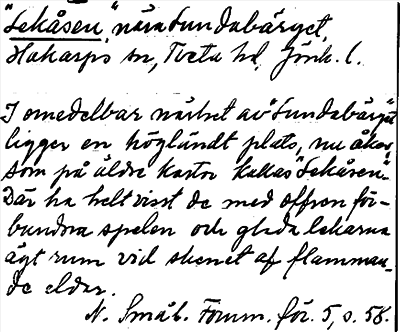 "Lekåsen", nära Sundabärget,
Hakarps sn, Tveta hd, Jönk. l.
I omedelbar närhet av "Sundabärget"
ligger en höglänt plats, nu åker,
som på äldre kartor kallas "Lekåsen".
Där ha helt visst de med offren för-
bundna spelen och glada lekarna
ägt rum vid skenet af flamman-
de eldar.
N. Smål. Fornm. för. 5, s. 58.